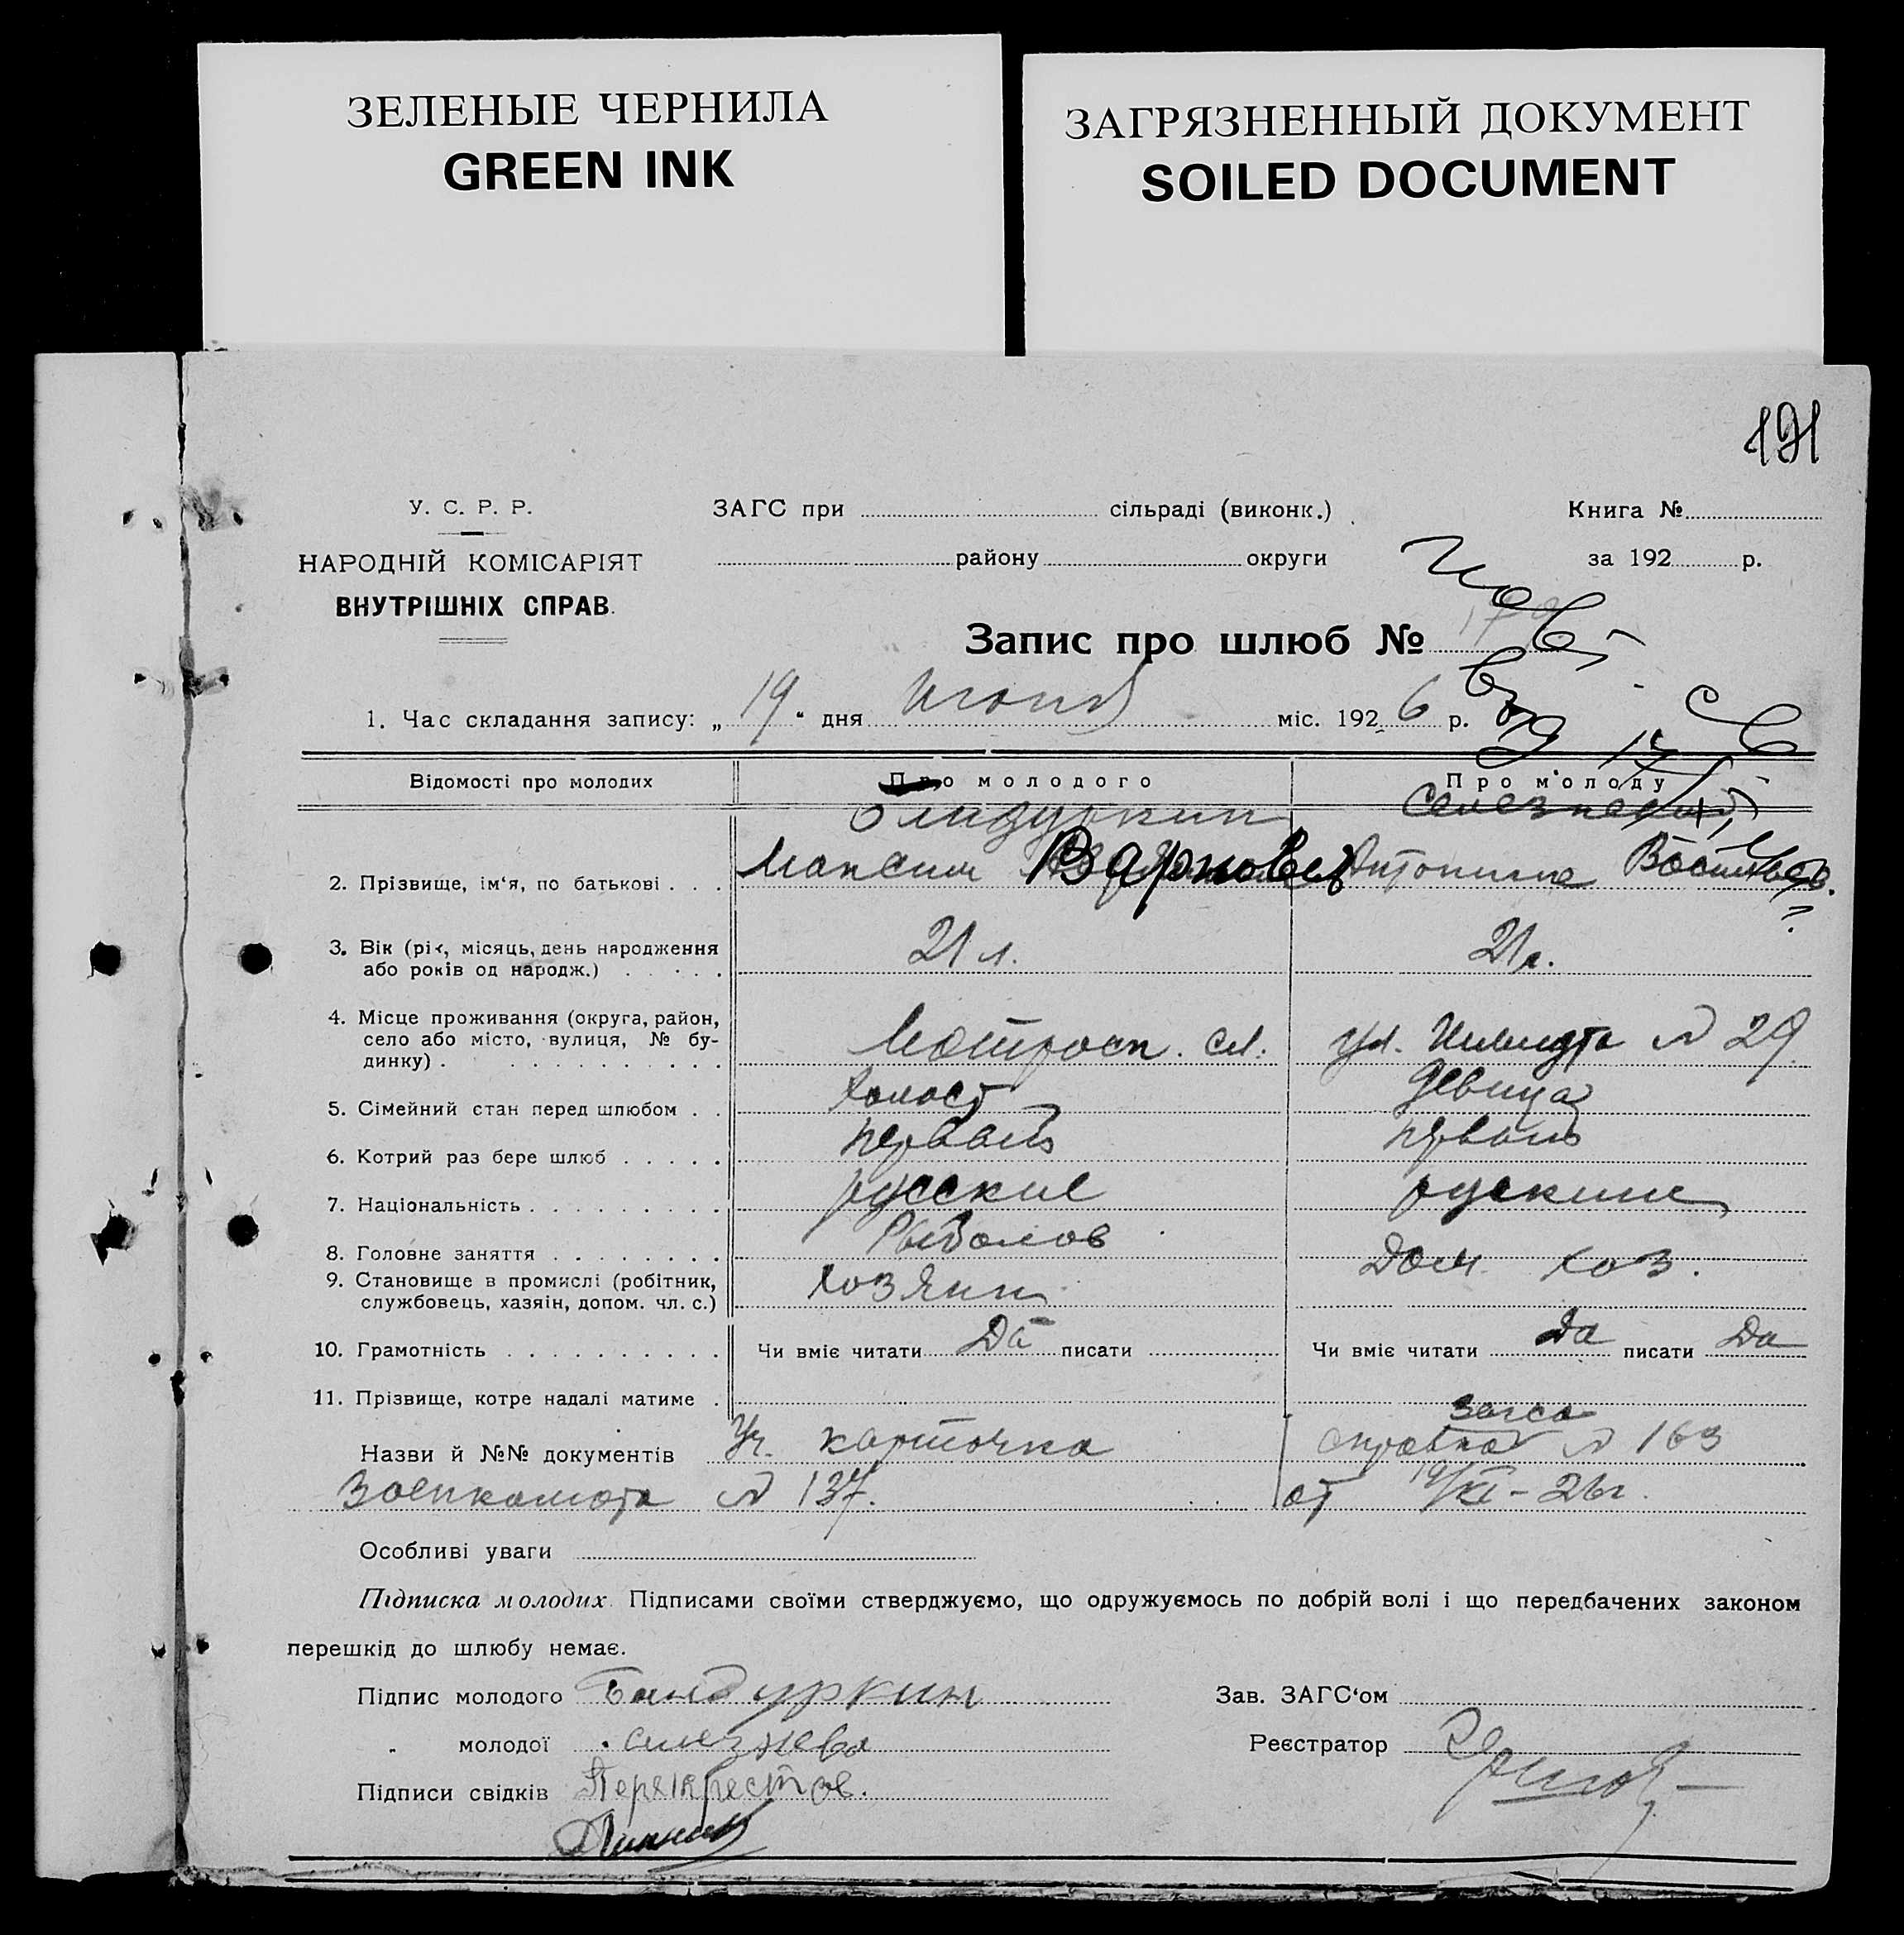 ЗЕЛЕНЫЕ ЧЕРНИЛА
GREEN INK
ЗАГРЯЗНЕННЫЙ ДОКУМЕНТ
SOILED DOCUMENT
191
У. С. Р. Р.
НАРОДНІЙ КОМІСАРІЯТ
ВНУТРІШНІХ СПРАВ.
ЗАГС при сільраді (виконк.)
району округи
Книга №
за 192 р.
Запис про шлюб №
1. Час складання запису: „ 19 " дня міс. 192 6 р.
Відомості про молодих Про молодого Про молоду
2. Прізвище, ім'я, по батькові . . . Максим Антонина
3. Вік (рік, місяць, день народження 21 л. 21 л.
або років од народж.) . . . . .
4. Місце проживання (округа, район,
село або місто, вулиця, № бу- Матросск. сл. ул. Шмидта № 29
динку) . . . . . . . . . . .
5. Сімейний стан перед шлюбом . . холост девица
6. Котрий раз бере шлюб . . . . . первый
7. Національність . . . . . . . . . русские
8. Головне заняття . . . . . . . Рыболов Дом. хоз.
9. Становище в промислі (робітник, хозяин
службовець, хазяін, допом. чл. с.)
10. Грамотність . . . . . . . . . . Чи вміє читати Да писати Чи вміє читати Да писати Да
11. Прізвище, котре надалі матиме .
загса
Назви й №№ документів Уч. карточка справка № 163
Военкомата № 137. от 19/XI - 26 г.
Особливі уваги
Підписка молодих. Підписами своїми стверджуємо, що одружуємось по добрій волі і що передбачених законом
перешкід до шлюбу немає.
Підпис молодого Бандуркин Зав. ЗАГС'ом
„ молодої Селезнева Реєстратор
Підписи свідків Перекрестов.